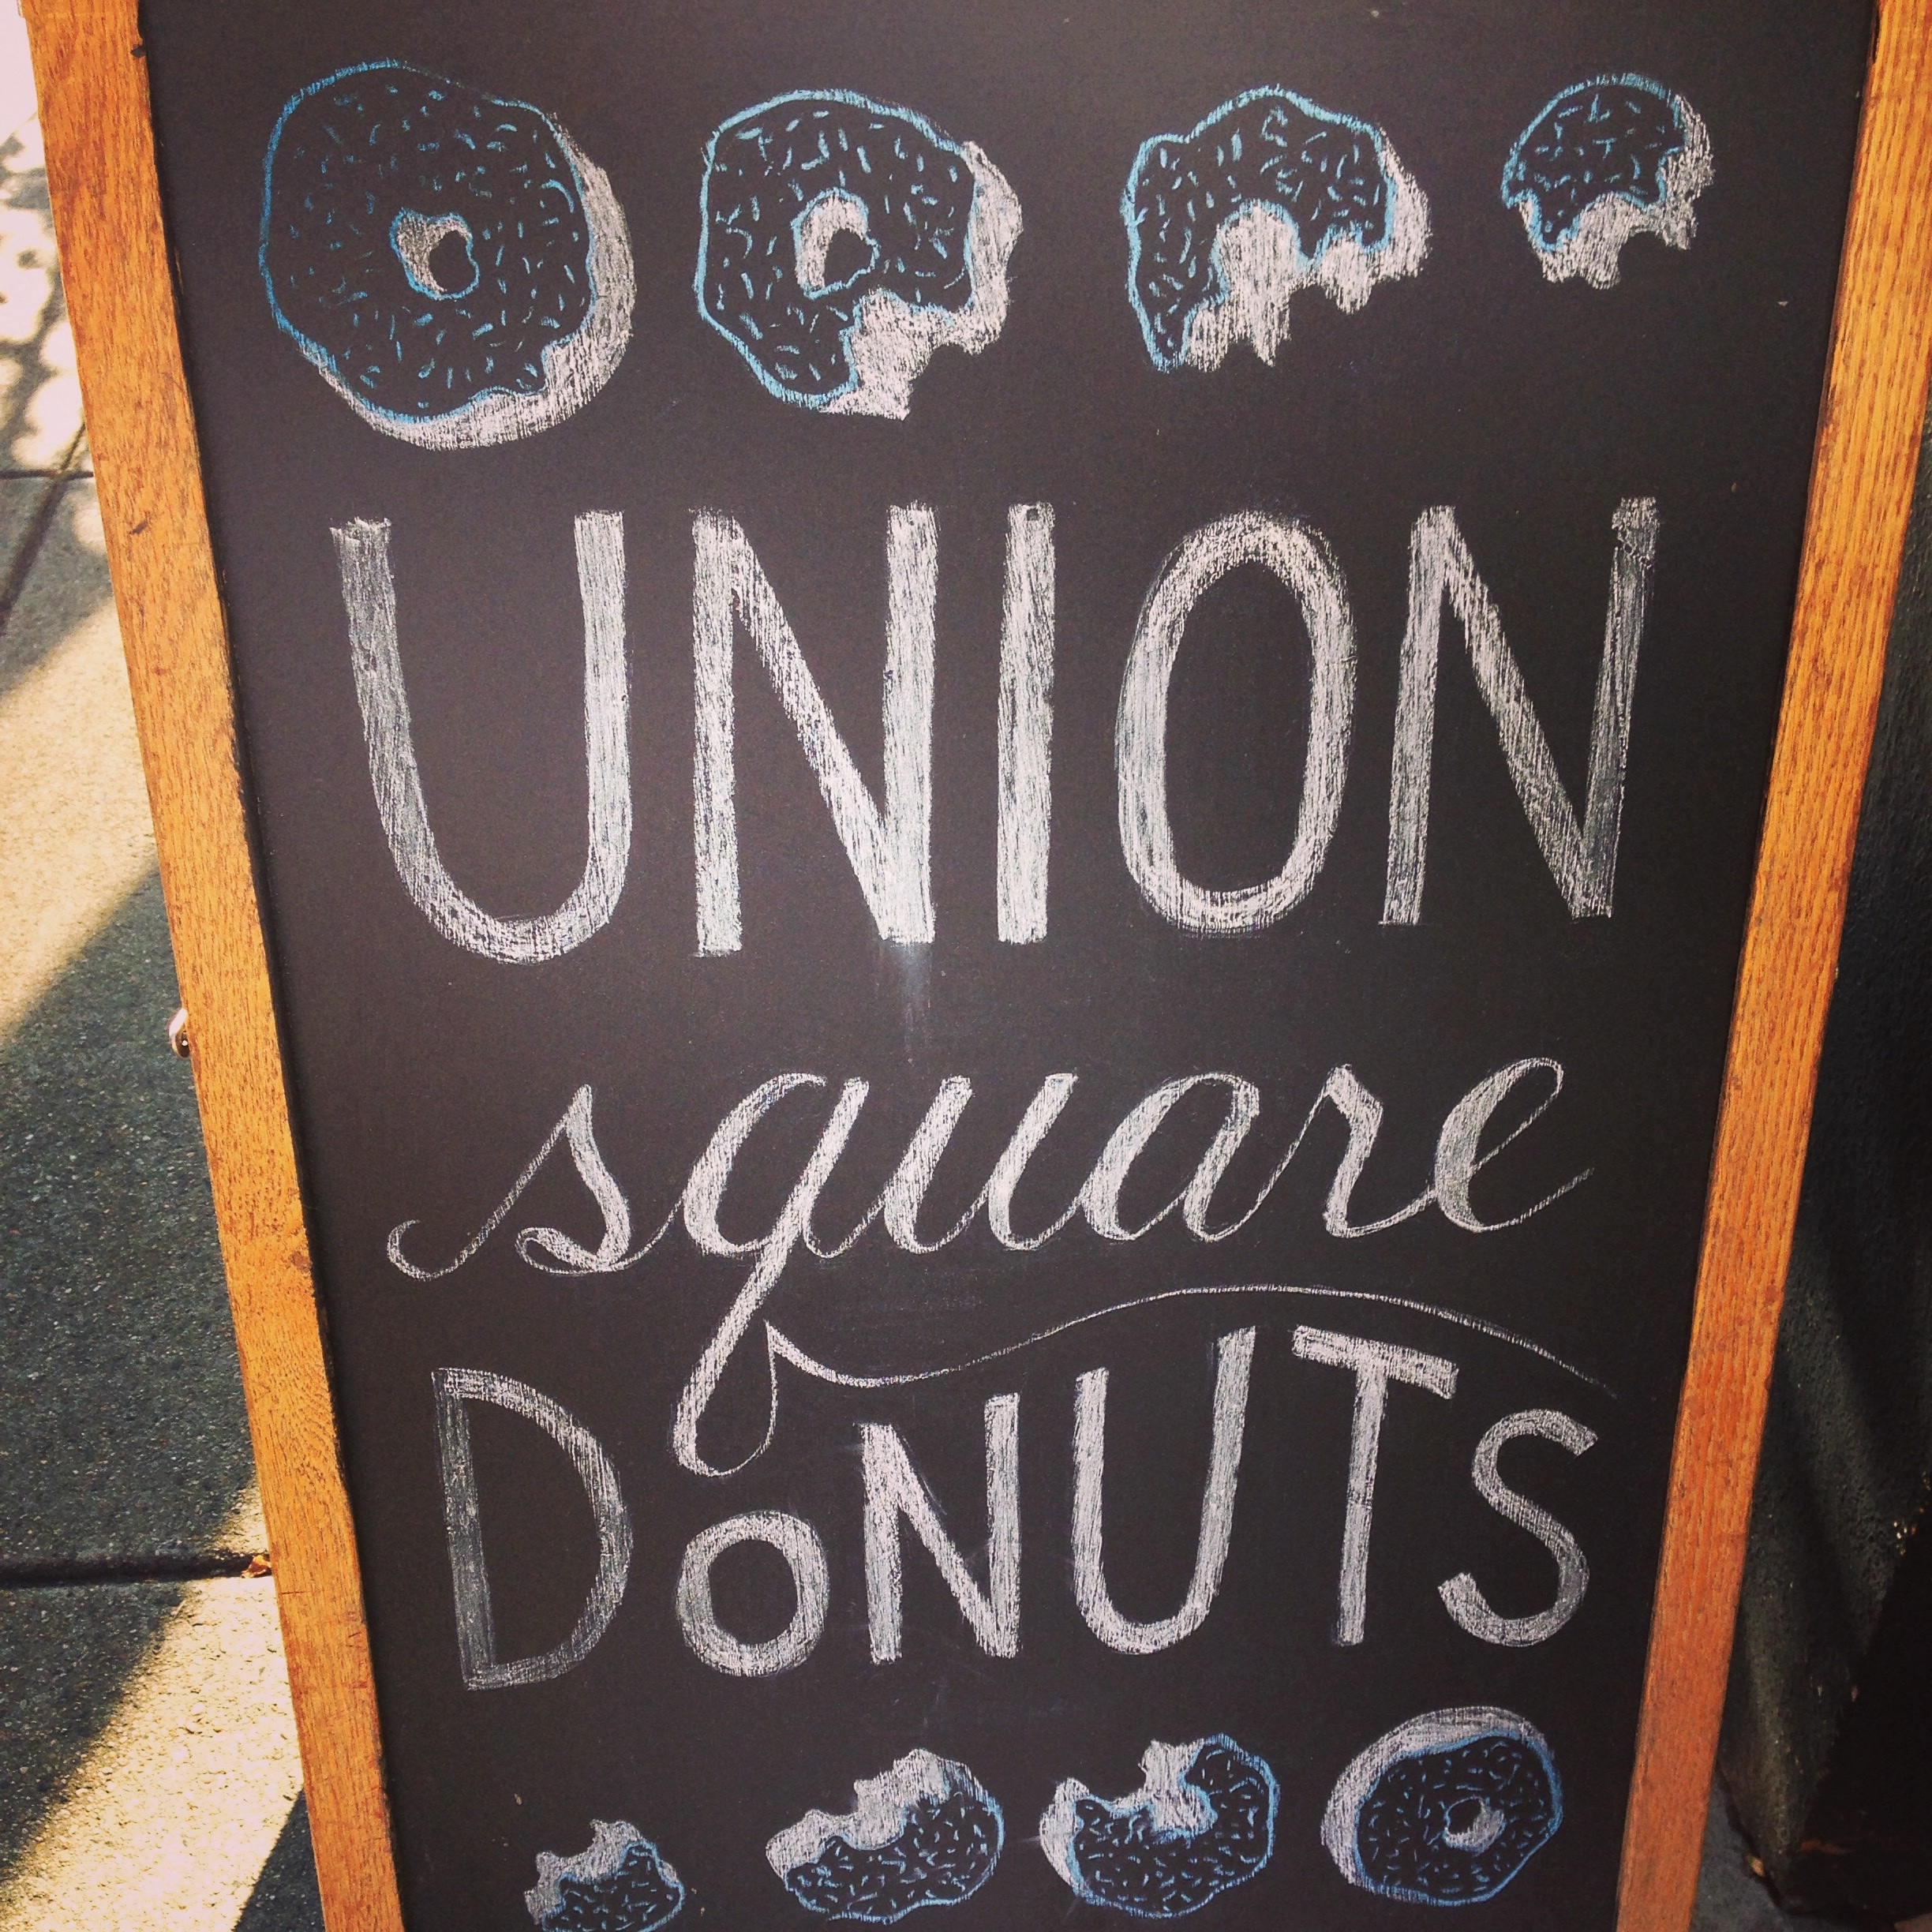 UNION
square
DoNUTS